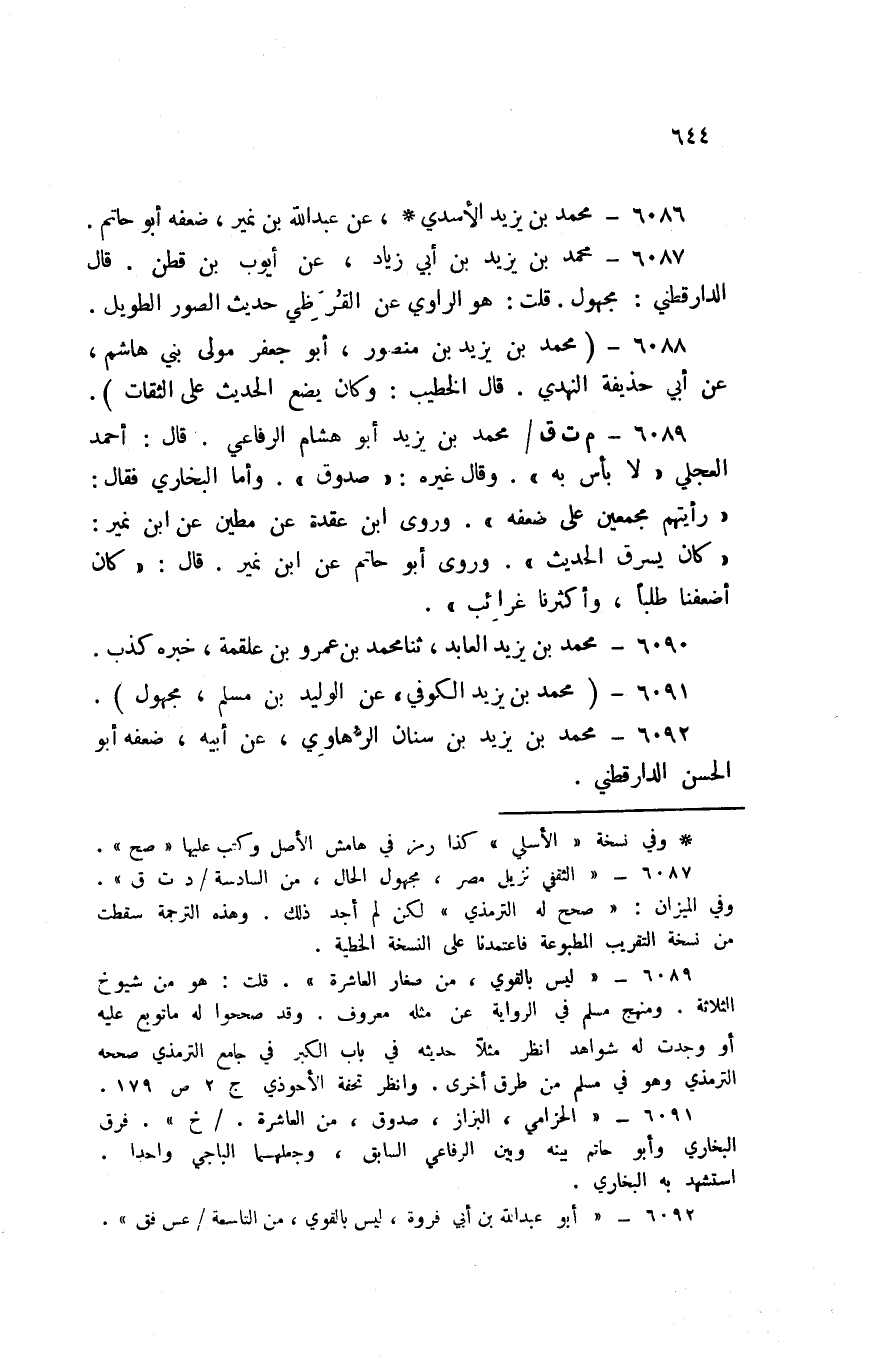 ٦٤٤
٦٠٨٦ – محمد بن يزيد الأسدي* ، عن عبدالله بن نمير ، ضعفه أبو حاتم .
٦٠٨٧ – محمد بن يزيد بن أبي زياد ، عن أيوب بن قطن . قال
الدارقطني : مجهول . قلت : هو الراوي عن القُرَظِي حديث الصور الطويل .
٦٠٨٨ – ( محمد بن يزيد بن منصور ، أبو جعفر مولى بني هاشم ،
عن أبي حذيفة النهدي . قال الخطيب : وكان يضع الحديث على الثقات ) .
٦٠٨٩ – م ت ق / محمد بن يزيد أبو هشام الرفاعي . قال : أحمد
العجلي « لا بأس به » . وقال غيره : « صدوق » . وأما البخاري فقال :
« رأيتهم مجمعين على ضعفه » . وروى ابن عقدة عن مطين عن ابن نمير :
« كان يسرق الحديث » . وروى أبو حاتم عن ابن نمير . قال : « كان
أضعفنا طلباً ، وأكثرنا غرائب » .
٦٠٩٠ – محمد بن يزيد العابد ، ثنا محمد بن عمرو بن علقمة ، خبره كذب .
٦٠٩١ – ( محمد بن يزيد الكوفي ، عن الوليد بن مسلم ، مجهول ) .
٦٠٩٢ – محمد بن يزيد بن سنان الرُهاوِي ، عن أبيه ، ضعفه أبو
الحسن الدارقطني .
* وفي نسخة « الأسلي » كذا رمز في هامش الأصل وكتب عليها « صح » .
٦٠٨٧ – « الثقفي نزيل مصر ، مجهول الحال ، من السادسة / د ت ق » .
وفي الميزان : « صحح له الترمذي » لكن لم أجد ذلك . وهذه الترجمة سقطت
من نسخة التقريب المطبوعة فاعتمدنا على النسخة الخطية .
٦٠٨٩ – « ليس بالقوي ، من صغار العاشرة » . قلت : هو من شيوخ
الثلاثة . ومنهج مسلم في الرواية عن مثله معروف . وقد صححوا له ماتوبع عليه
أو وجدت له شواهد انظر مثلاً حديثه في باب الكبر في جامع الترمذي صححه
الترمذي وهو في مسلم من طرق أخرى . وانظر تحفة الأحوذي ج ٢ ص ١٧٩ .
٦٠٩١ – « الحزامي ، البزاز ، صدوق ، من العاشرة . / خ » . فرق
البخاري وأبو حاتم بينه وبين الرفاعي السابق ، وجعلهما الباجي واحدا .
استشهد به البخاري .
٦٠٩٢ – « أبو عبدالله بن أبي فروة ، ليس بالقوي ، من التاسعة / عس فق » .